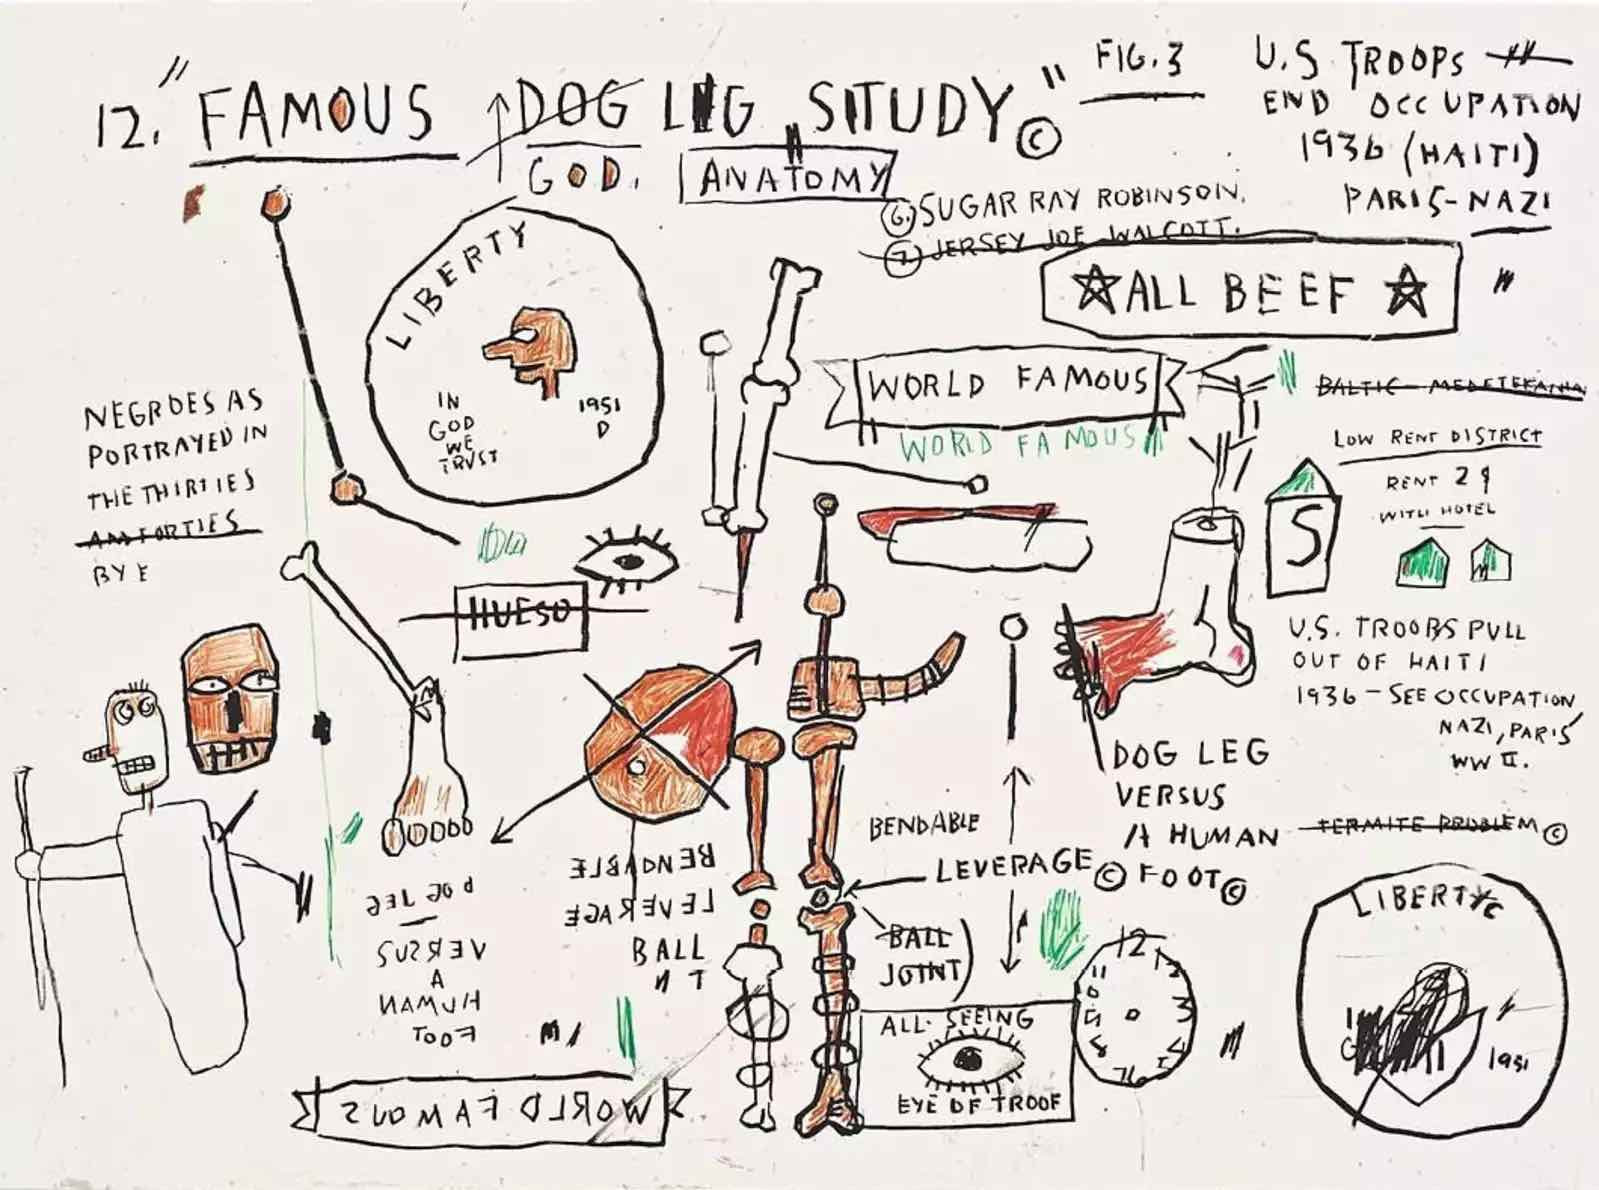 12. "FAMOUS DOG LEG STUDY © "
GOD.
ANATOMY
FIG. 3
U.S TROOPS
END OCCUPATION
1936 (HAITI)
PARIS-NAZI
6. SUGAR RAY ROBINSON.
7. JERSEY JOE WALCOTT.
ALL BEEF
LIBERTY
IN
GOD
WE
TRUST
1951
D
WORLD FAMOUS
WORLD FAMOUS
BALTIC
LOW RENT DISTRICT
RENT 2
WITH HOTEL
S
NEGROES AS
PORTRAYED IN
THE THIRTIES
FORTIES
BY E
HUESO
U.S. TROOBS PULL
OUT OF HAITI
1936 - SEE OCCUPATION
NAZI, PARIS
WW II.
TERMITE PROBLEM ©
DOG LEG
VERSUS
A HUMAN
FOOT ©
BENDABLE
LEVERAGE ©
BALL
JOINT
BENDABLE
LEVERAGE
BALL
N T
DOG LEG
VERSUS
A
HUMAN
FOOT
WORLD FAMOUS
ALL SEEING
EYE OF TROOF
12
LIBERTY
1951